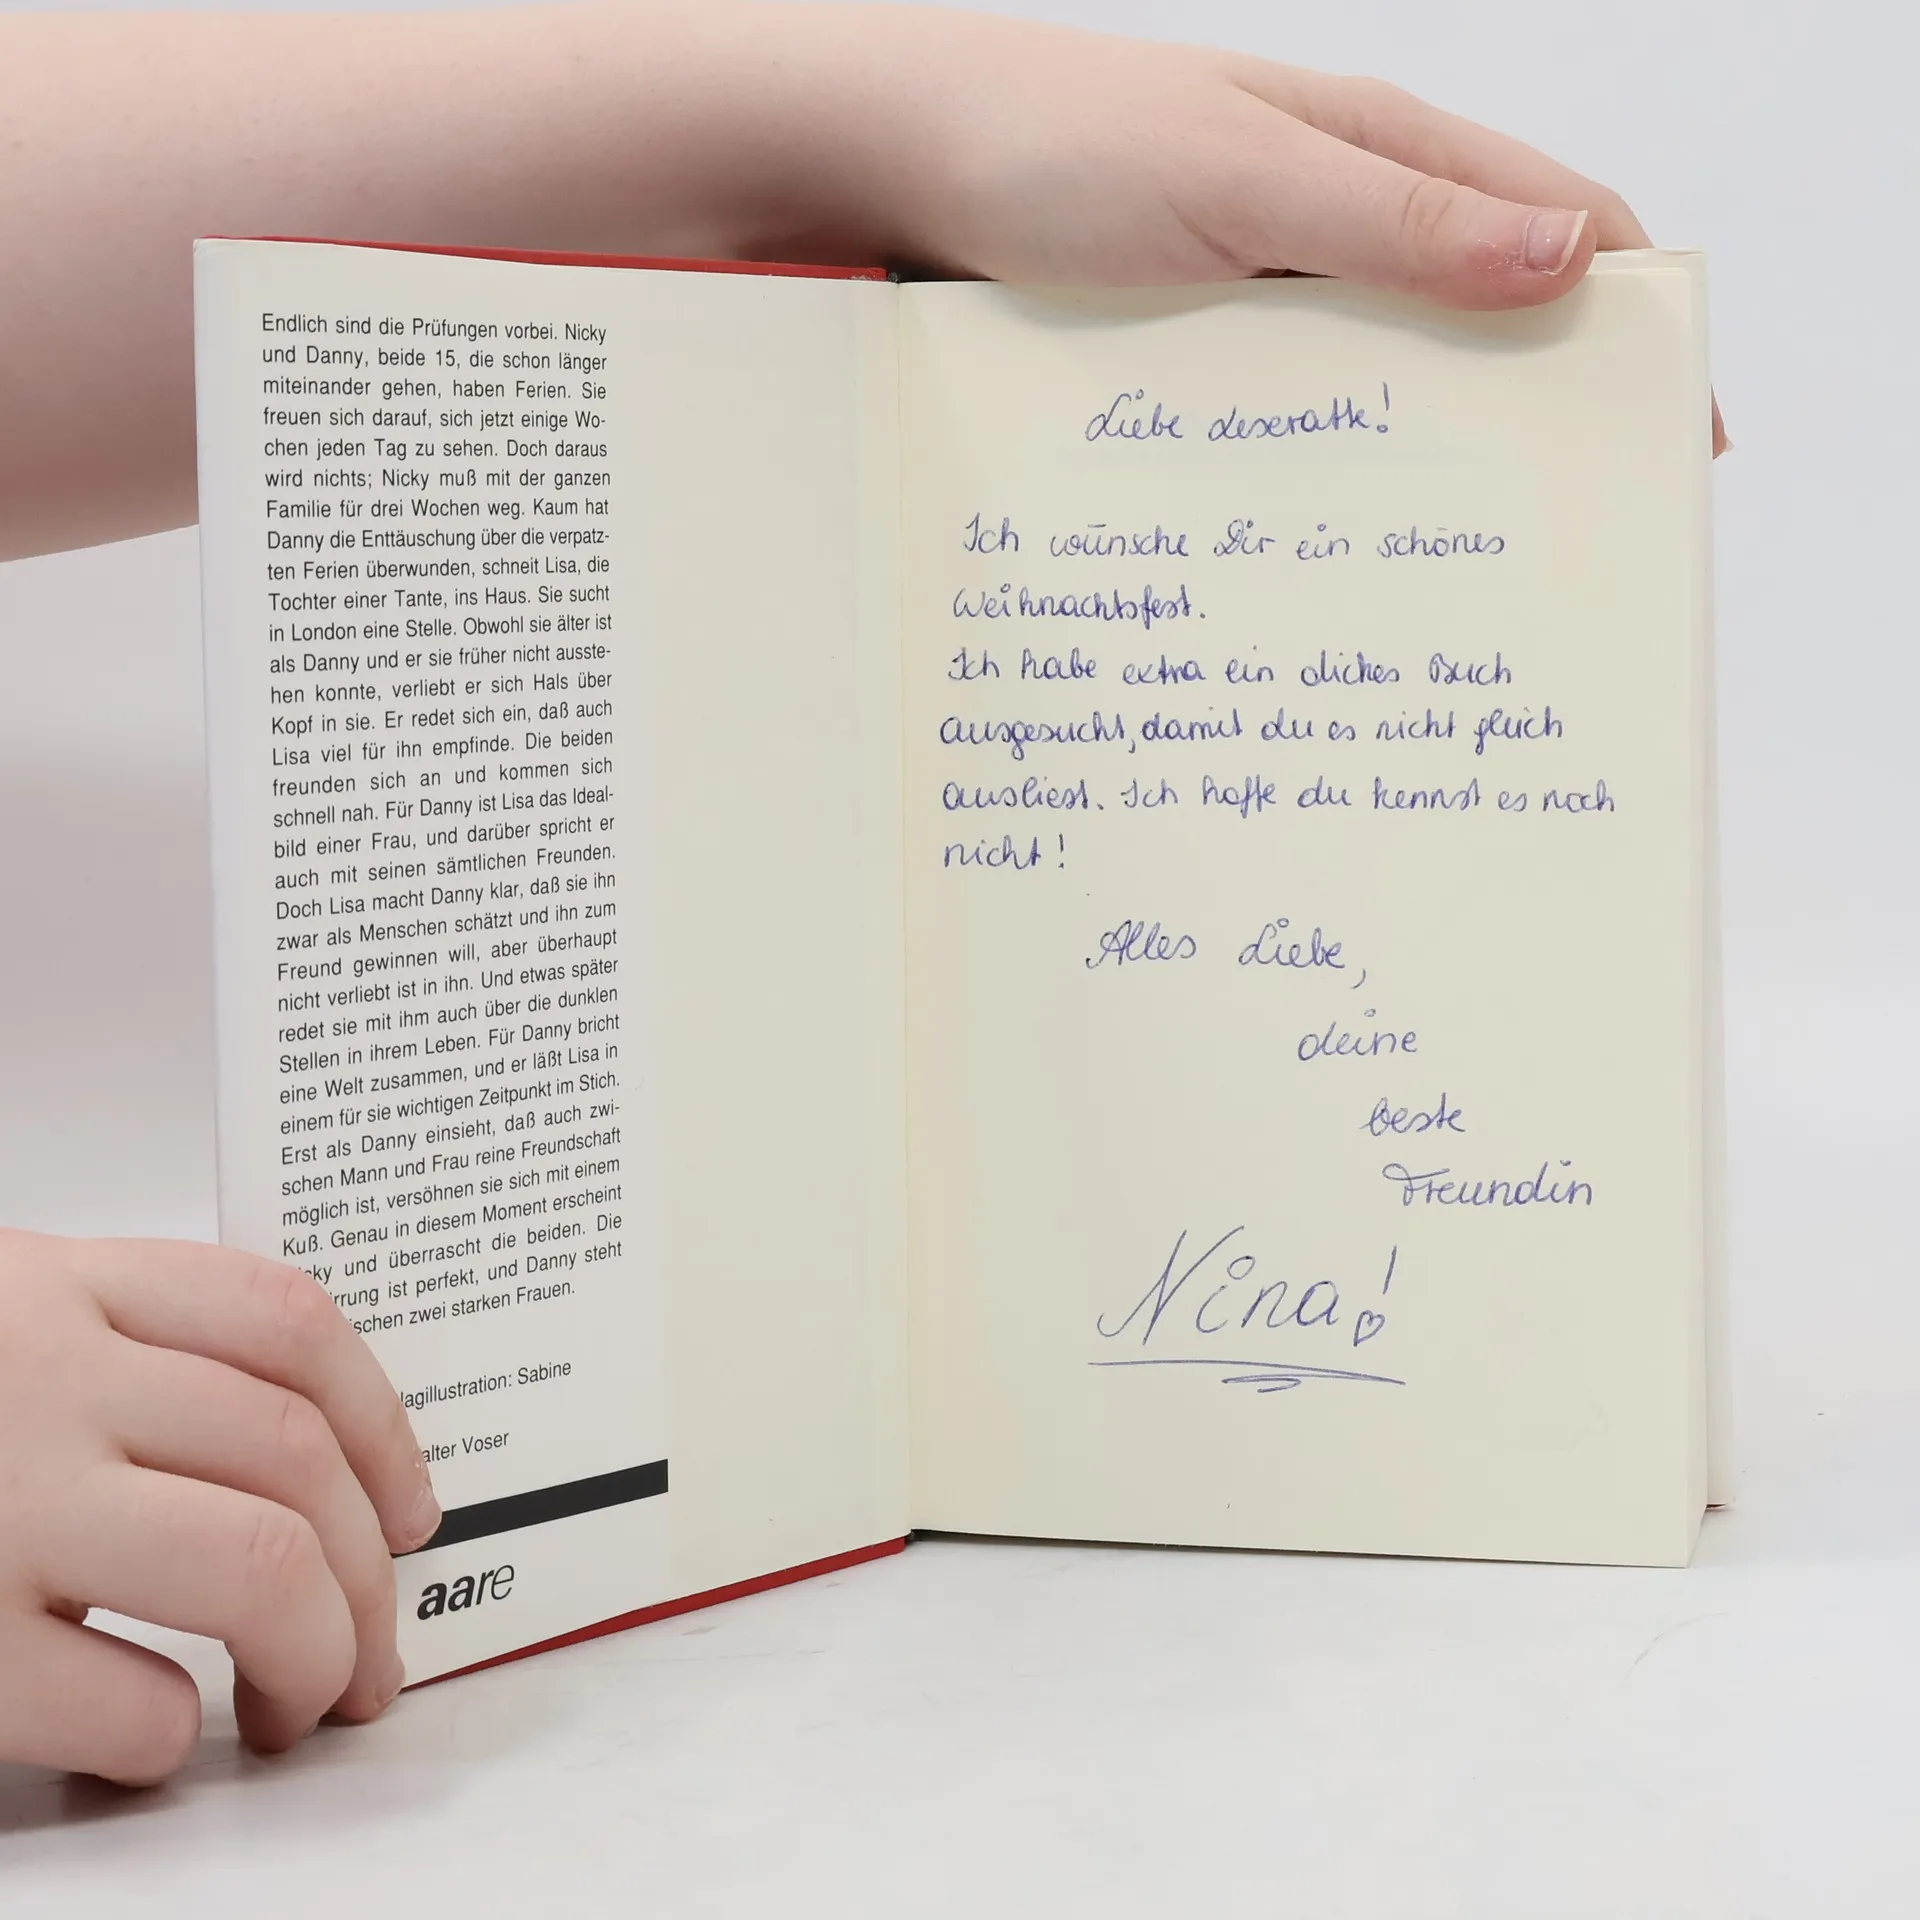 Endlich sind die Prüfungen vorbei. Nicky
und Danny, beide 15, die schon länger
miteinander gehen, haben Ferien. Sie
freuen sich darauf, sich jetzt einige Wo-
chen jeden Tag zu sehen. Doch daraus
wird nichts; Nicky muß mit der ganzen
Familie für drei Wochen weg. Kaum hat
Danny die Enttäuschung über die verpatz-
ten Ferien überwunden, schneit Lisa, die
Tochter einer Tante, ins Haus. Sie sucht
in London eine Stelle. Obwohl sie älter ist
als Danny und er sie früher nicht ausste-
hen konnte, verliebt er sich Hals über
Kopf in sie. Er redet sich ein, daß auch
Lisa viel für ihn empfinde. Die beiden
freunden sich an und kommen sich
schnell nah. Für Danny ist Lisa das Ideal-
bild einer Frau, und darüber spricht er
auch mit seinen sämtlichen Freunden.
Doch Lisa macht Danny klar, daß sie ihn
zwar als Menschen schätzt und ihn zum
Freund gewinnen will, aber überhaupt
nicht verliebt ist in ihn. Und etwas später
redet sie mit ihm auch über die dunklen
Stellen in ihrem Leben. Für Danny bricht
eine Welt zusammen, und er läßt Lisa in
einem für sie wichtigen Zeitpunkt im Stich.
Erst als Danny einsieht, daß auch zwi-
schen Mann und Frau reine Freundschaft
möglich ist, versöhnen sie sich mit einem
Kuß. Genau in diesem Moment erscheint
cky und überrascht die beiden. Die
irrung ist perfekt, und Danny steht
ischen zwei starken Frauen.
lagillustration: Sabine
alter Voser
aare
Liebe Leseratte!
Ich wünsche Dir ein schönes
Weihnachtsfest.
Ich habe extra ein dickes Buch
ausgesucht, damit du es nicht gleich
ausliest. Ich hoffe du kennst es noch
nicht!
Alles Liebe,
deine
beste
Freundin
Nina!